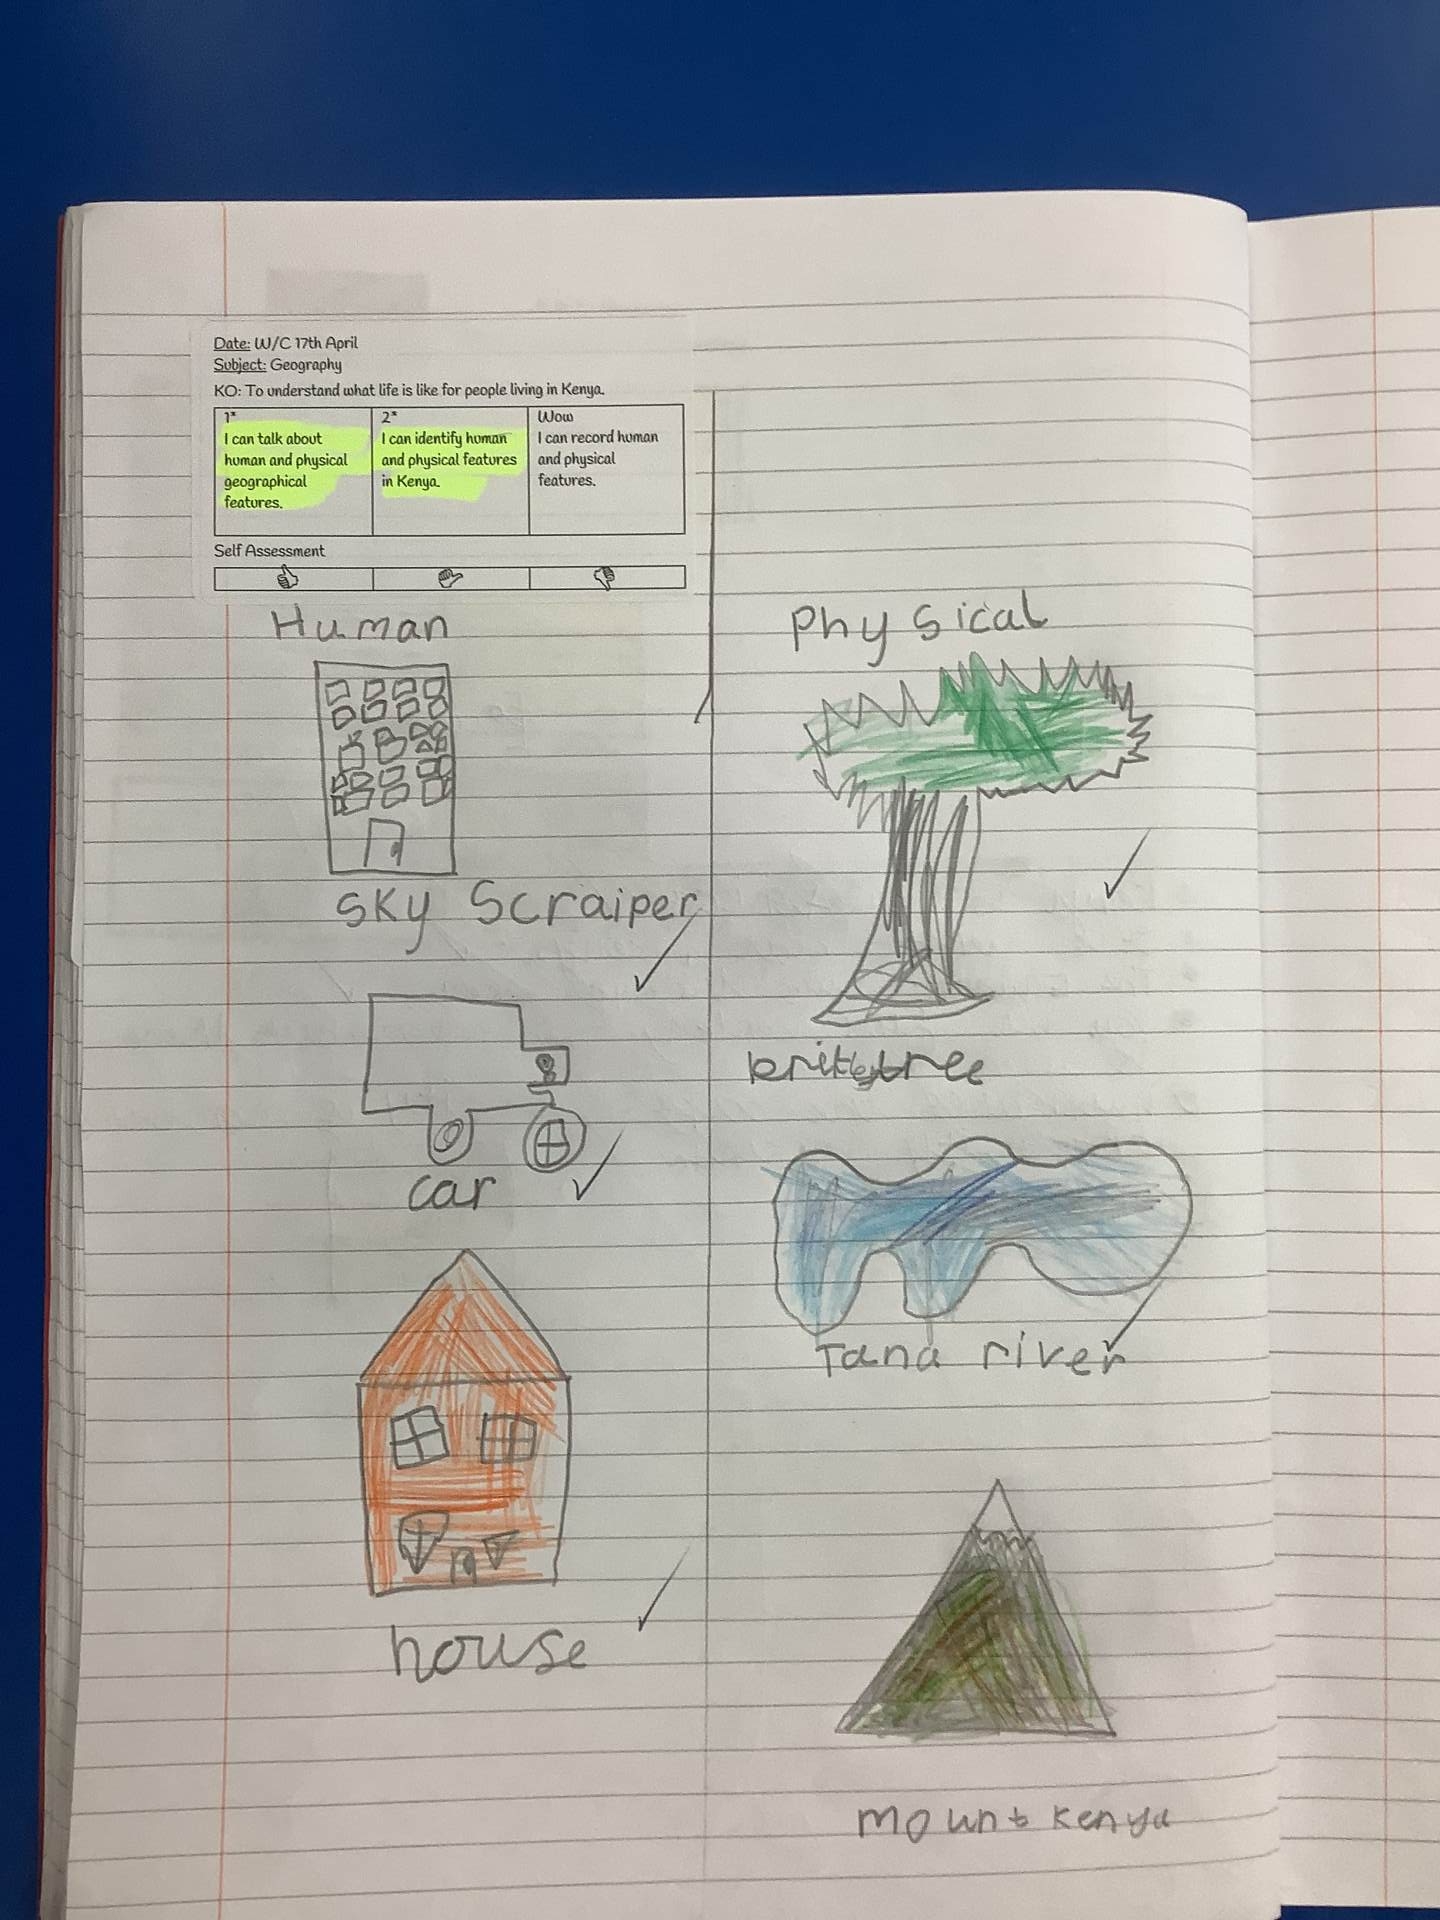 Date: W/C 17th April
Subject: Geography
KO: To understand what life is like for people living in Kenya.
1*
I can talk about
human and physical
geographical
features.
2*
I can identify human
and physical features
in Kenya.
Wow
I can record human
and physical
features.
Self Assessment
Human
sky Scraiper
car
house
Physical
tree
Tana river
mount kenya